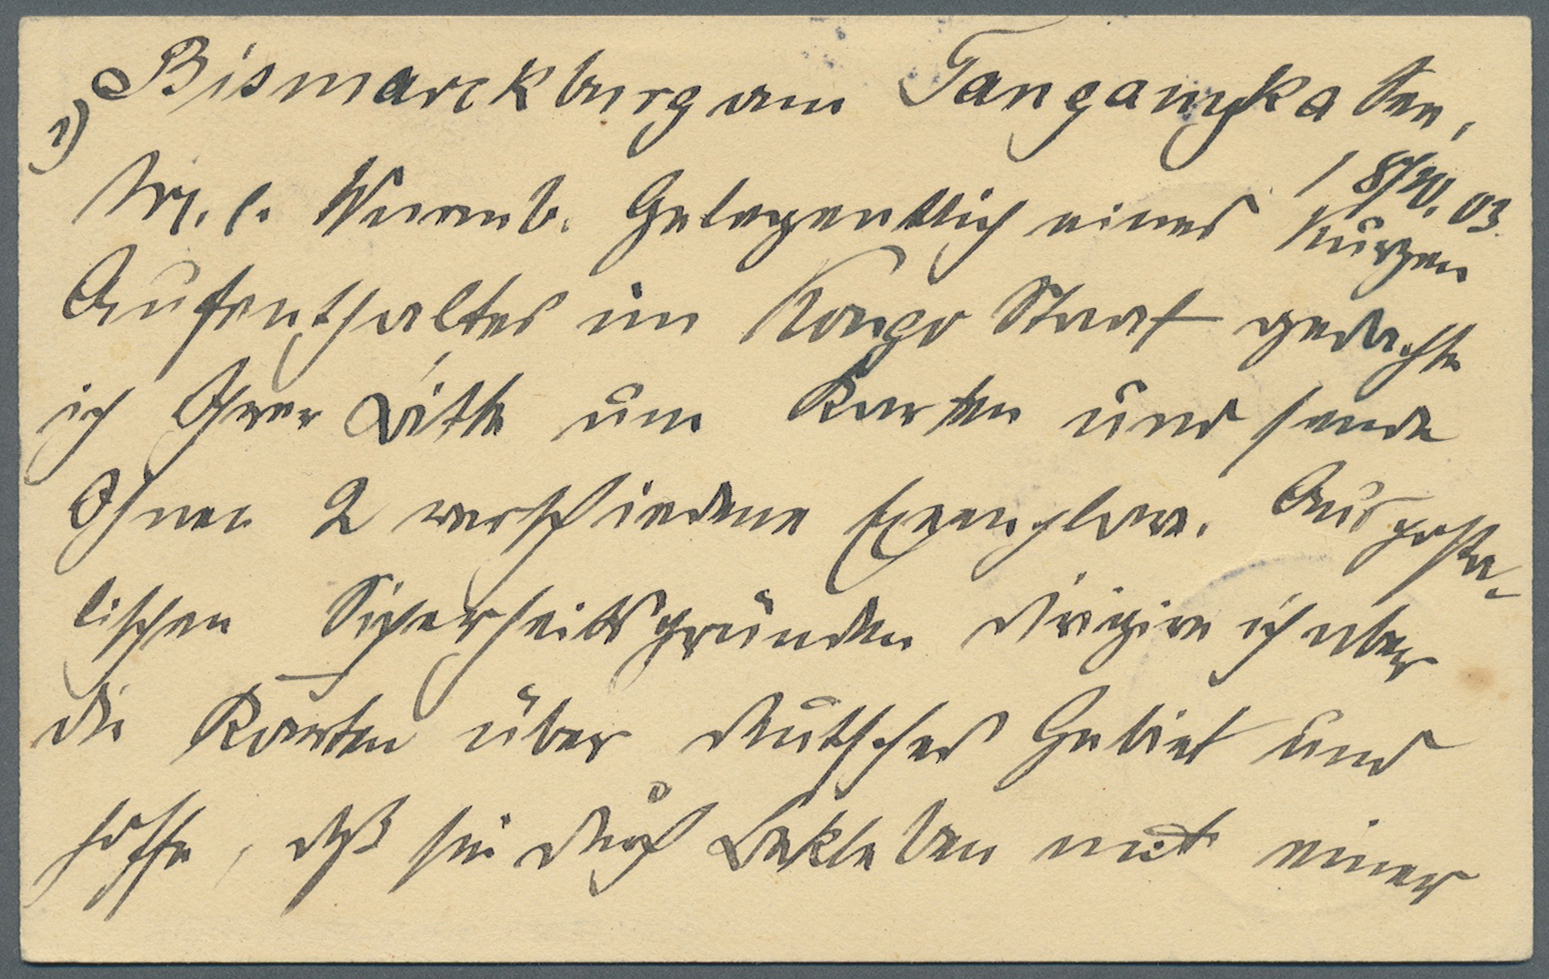 1) Bismarckburg am Tanganyka See,
18/XI. 03.
M. l. Gelegentlich eines kurzen
Aufenthaltes im Kongo Staat gedachte
ich Ihrer Bitte um Karten und sende
Ihnen 2 verschiedene Exemplare. Aus posta-
lischen Sicherheitsgründen dirigire ich aber
die Karten über deutsches Gebiet und
hoffe, daß sie durch Bekleben mit einer